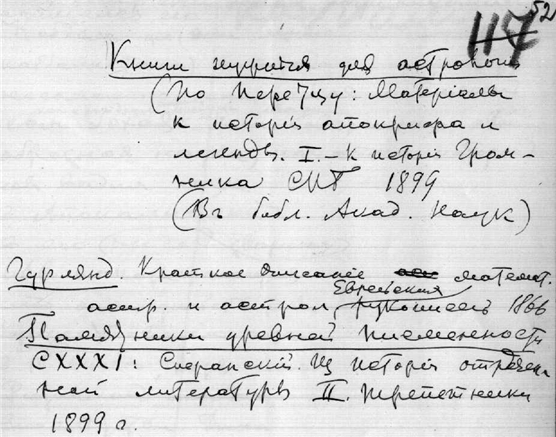 52
117
Книги нужныя для астроном
(По Перетцу: Матерiалы
к исторiи апокрифа и
легенды. I. – к исторiи Гром-
ника СПб 1899
(Въ библ. Акад. Наук)
Гурлянд. Краткое описанiе математ.
астр. и астрол Еврейских рукописей 1866
Памятники древней письменности
CXXXI: Сперанскiй. Из исторiи отречен-
ной литературы II. Трепетники
1899 г.